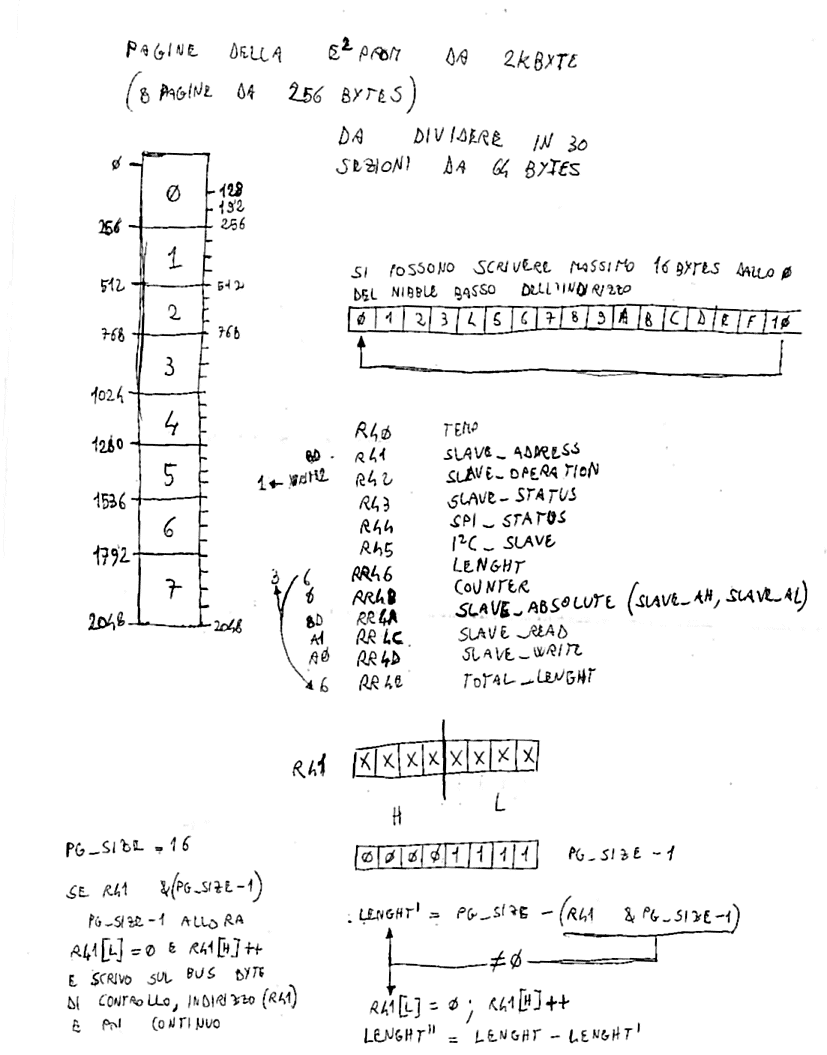 PAGINE DELLA E² PROM DA 2KBYTE
(8 PAGINE DA 256 BYTES)
DA DIVIDERE IN 30
SEZIONI DA 64 BYTES
Ø
0
128
192
256
256
1
512
512
2
768
768
3
1024
4
1280
5
1536
6
1792
7
2048
2048
SI POSSONO SCRIVERE MASSIMO 16 BYTES DALLO Ø
DEL NIBBLE BASSO DELL'INDIRIZZO
Ø 1 2 3 4 5 6 7 8 9 A B C D E F 1Ø
R4Ø TEMP
BD R41 SLAVE_ADRESS
1 ← R42 SLAVE_OPERATION
R43 SLAVE_STATUS
R44 SPI_STATUS
R45 I²C_SLAVE
3 6 RR46 LENGHT
Ø RR48 COUNTER
BD RR4A SLAVE_ABSOLUTE (SLAVE_AH, SLAVE_AL)
A1 RR4C SLAVE_READ
AØ RR4D SLAVE_WRITE
6 RR4E TOTAL_LENGHT
R41 X X X X X X X X
H L
PG_SIZE = 16
Ø Ø Ø Ø 1 1 1 1 PG_SIZE - 1
SE R41 &(PG_SIZE-1)
PG-SIZE-1 ALLORA
R41[L]=Ø E R41[H]++
E SCRIVO SUL BUS BYTE
DI CONTROLLO, INDIRIZZO (R41)
E POI CONTINUO
LENGHT' = PG_SIZE - (R41 & PG_SIZE-1)
≠Ø
R41[L] = Ø ; R41[H]++
LENGHT" = LENGHT - LENGHT'